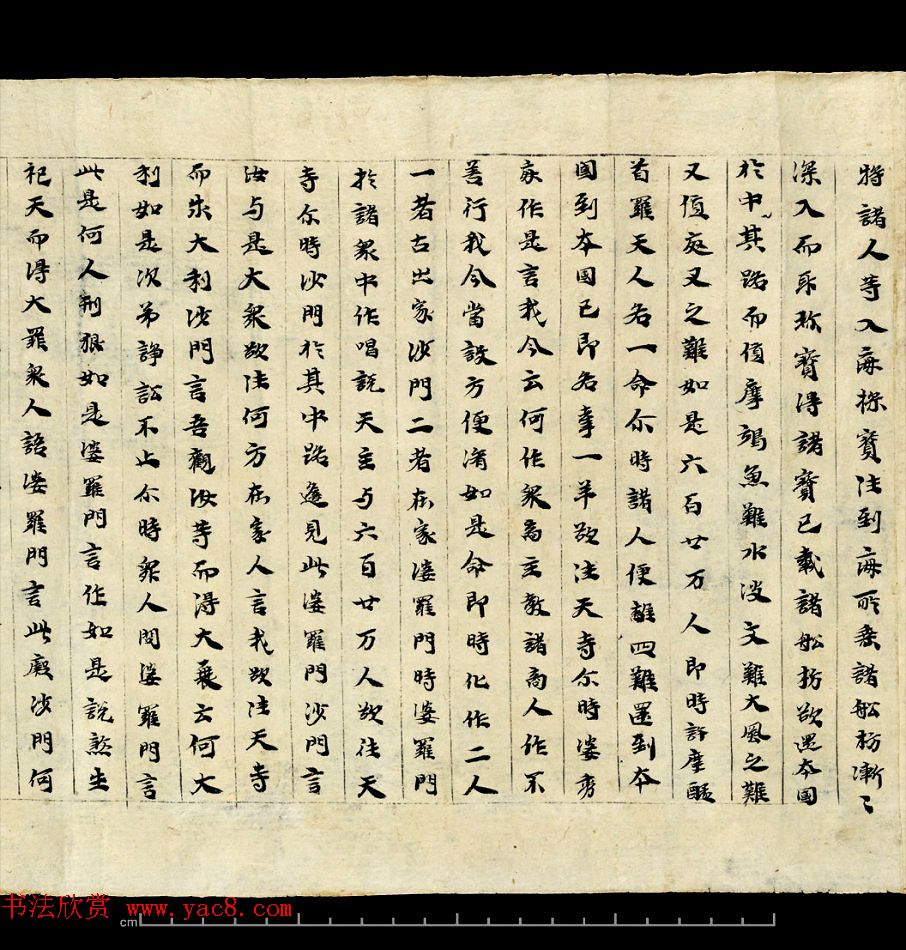 將諸人等入海採寶往到海所乘諸舩舫漸〻
深入而取珎寶得諸寶已載諸舩舫欲還本國
於中其路而值摩竭魚難水波之難大風之難
又值夜叉之難如是六百廿万人即時許摩醯
首羅天人各一命尒時諸人便離四難還到本
國到本國已即各牽一羊欲往天寺尒時婆秀
哀作是言我今云何作眾商主教諸商人作不
善行我今當設方便濟如是命即時化作二人
一者古出家沙門二者在家婆羅門時婆羅門
於諸眾中作唱說天主与六百廿万人欲往天
寺尒時沙門於其中路逢見此婆羅門沙門言
汝与是大眾欲往何方在家人言我欲往天寺
而求大利沙門言吾觀汝等而得大衰云何大
利如是次第諍訟不止尒時眾人問婆羅門言
此是何人形狠如是婆羅門言作如是說煞生
祀天而得大罪眾人語婆羅門言此癡沙門何
书法欣赏 www.yac8.com
cm